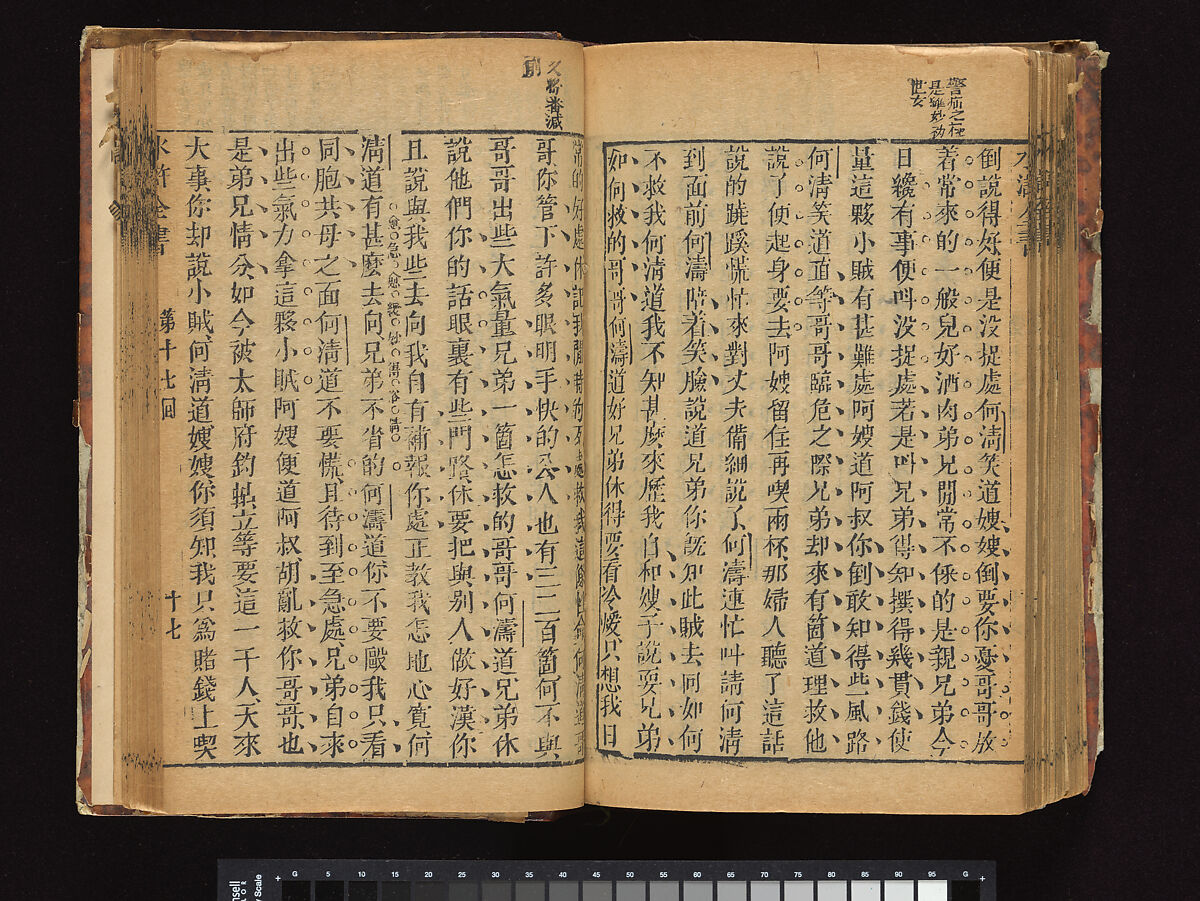 警
是雖妙
世女
倒說得好便是没捉處何淸笑道嫂嫂倒要你憂哥哥放
着常來的一般兒好酒肉弟兄閒常不倸的是親兄弟今
日纔有事便叫没捉處若是叫兄弟得知撰得幾貫錢使
量這夥小賊有甚難處阿嫂道阿叔你倒敢知得些風路
何淸笑道直等哥哥臨危之際兄弟却來有箇道理救他
說了便起身要去阿嫂留住再喫兩杯那婦人聽了這話
說的蹺蹊慌忙來對丈夫備細說了何濤連忙叫請何淸
到面前何濤陪着笑臉說道兄弟你旣知此賊去向如何
不救我何淸道我不知甚麽來歷我自和嫂子說耍兄弟
如何救的哥哥何濤道好兄弟休得要看冷煖只想我日
常的好處休記我閒時的歹處救我這條性命何淸道哥
哥你管下許多眼明手快的公人也有三二百箇何不與
哥哥出些大氣量兄弟一箇怎救的哥哥何濤道兄弟休
說他們你的話眼裏有些門路休要把與别人做好漢你
且說與我些去向我自有補報你處正教我怎地心寬何
淸道有甚麽去向兄弟不省的何濤道你不要毆我只看
同胞共母之面何淸道不要慌且待到至急處兄弟自來
出些氣力拿這夥小賊阿嫂便道阿叔胡亂救你哥哥也
是弟兄情分如今被太師府鈞帖立等要這一干人天來
大事你却說小賊何淸道嫂嫂你須知我只爲賭錢上喫
水滸全書
第十七回
十七
5 10 15 20 25 30 40 45 50 55 60 65 70 75 80 85 90 95 G